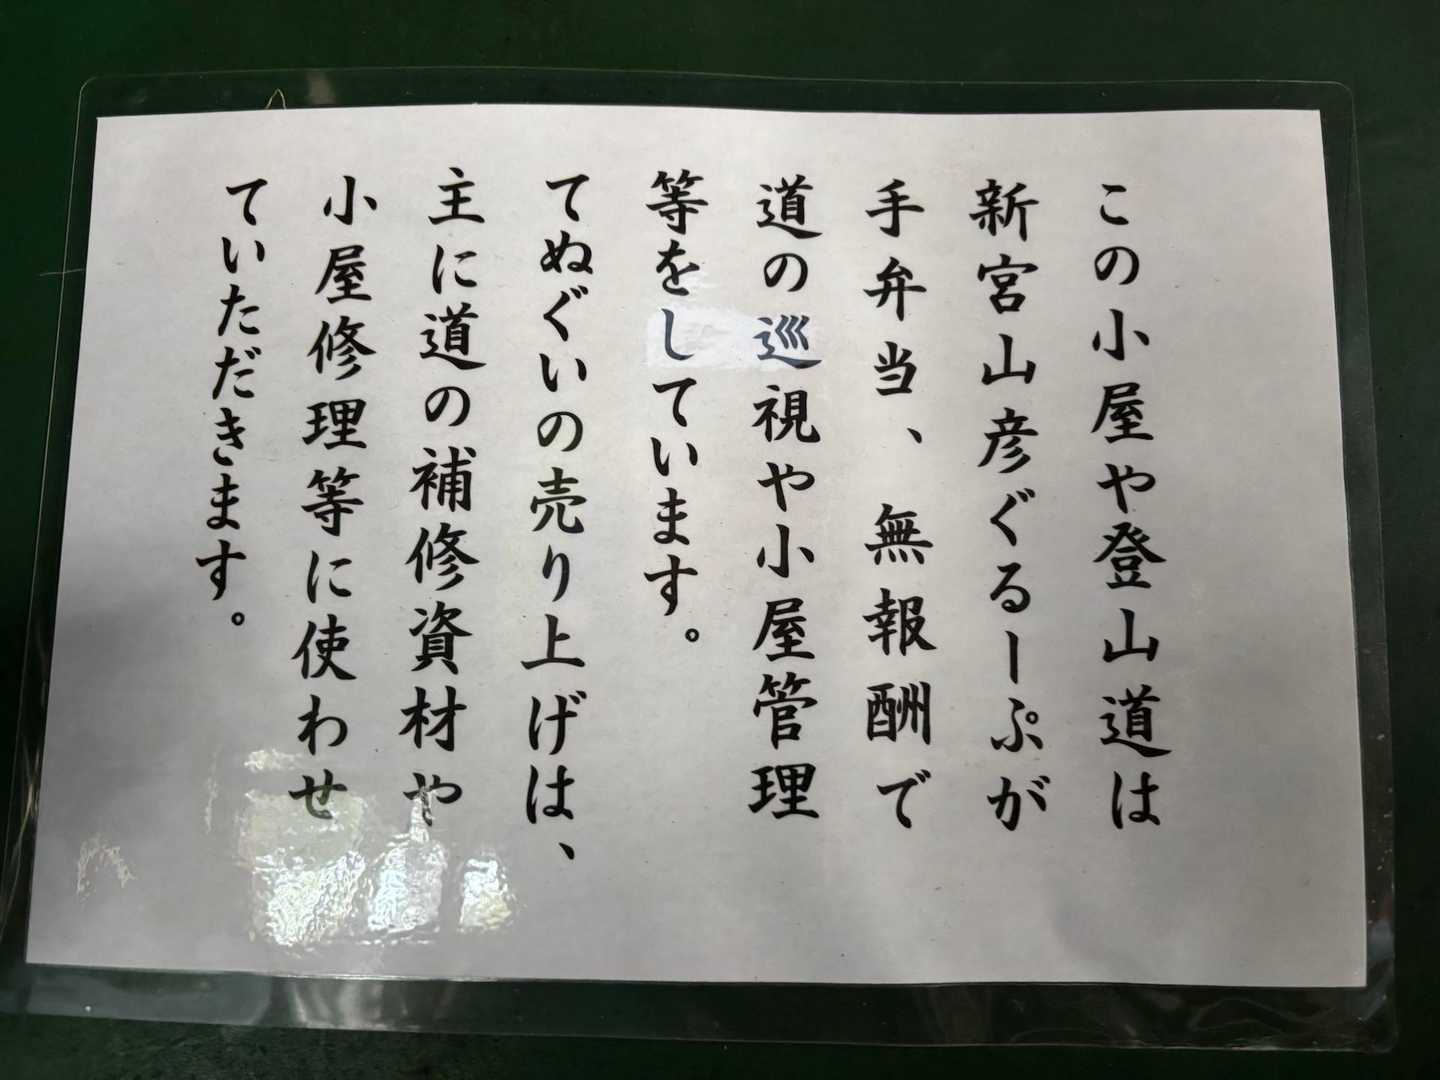 この小屋や登山道は
新宮山彦ぐるーぷが
手弁当、無報酬で
道の巡視や小屋管理
等をしています。
てぬぐいの売り上げは、
主に道の補修資材や
小屋修理等に使わせ
ていただきます。